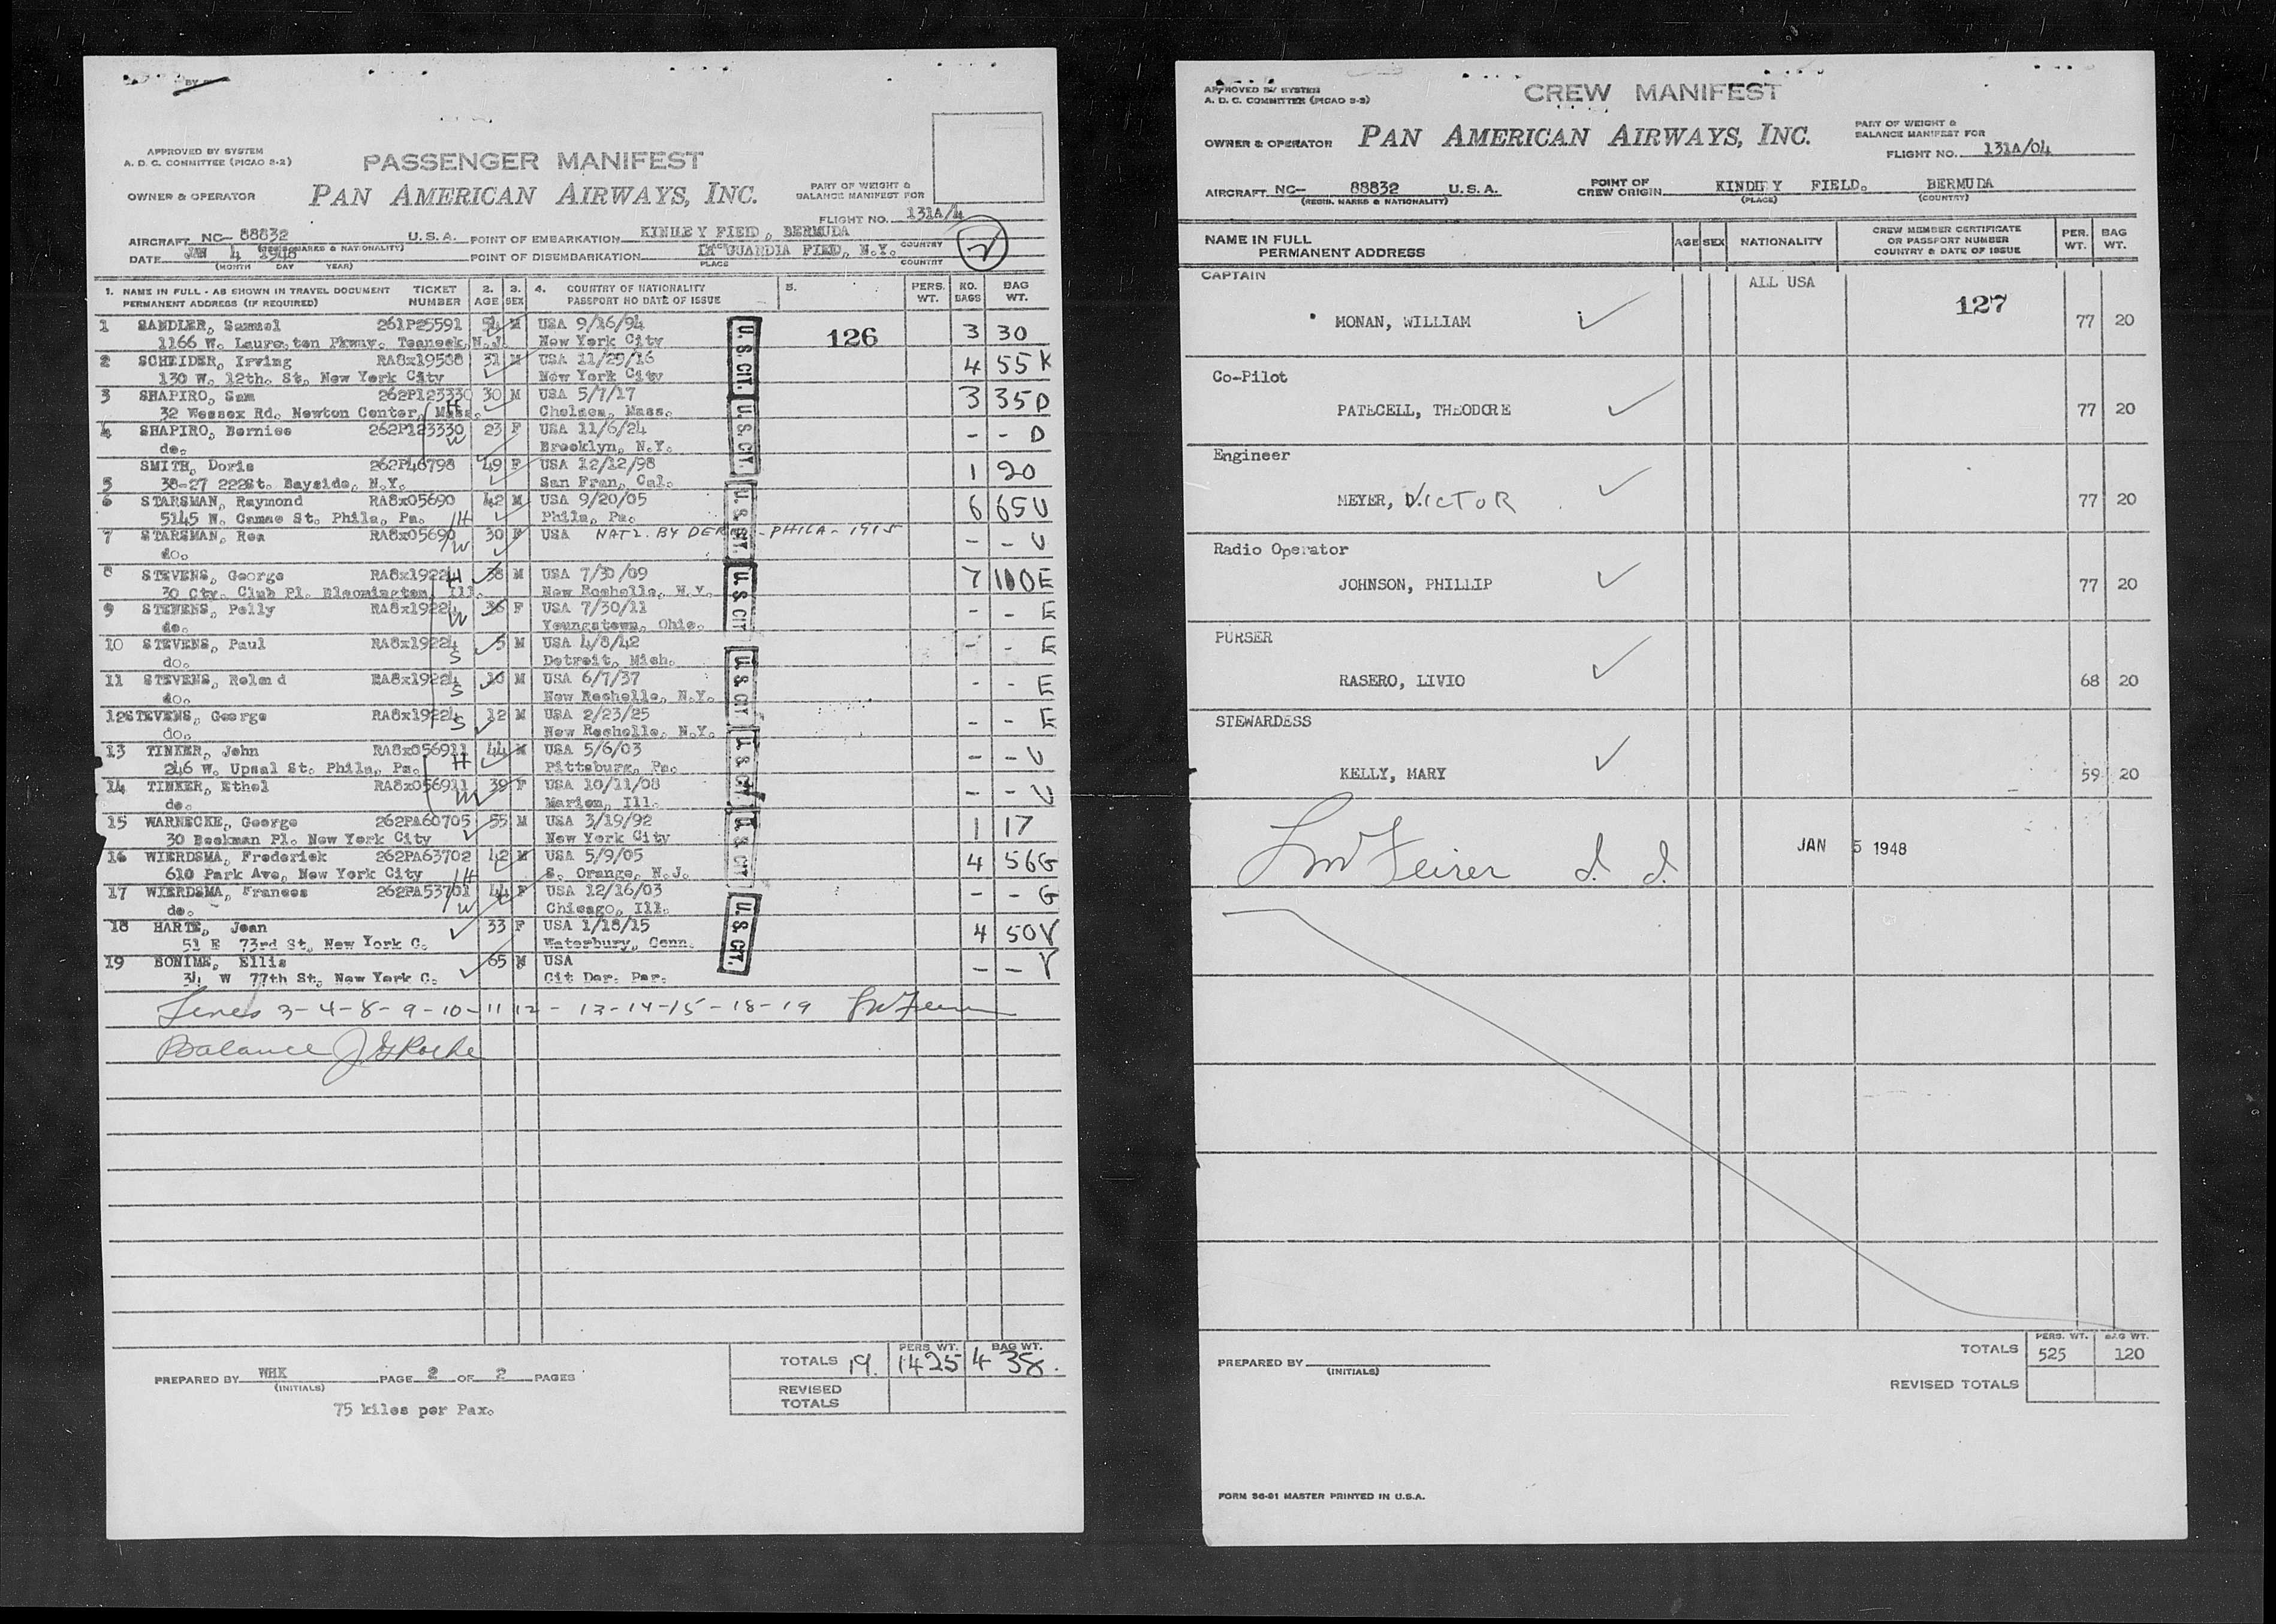 APPROVED BY SYSTEM
A. D. C. COMMITTEE (PICAO 2-2)
PASSENGER MANIFEST
OWNER & OPERATOR PAN AMERICAN AIRWAYS, INC.
PART OF WEIGHT &
BALANCE MANIFEST FOR
FLIGHT NO. 131A/4
AIRCRAFT NC- 88832 U.S.A. POINT OF EMBARKATION KINDLEY FIELD, BERMUDA
(REGIS. MARKS & NATIONALITY) COUNTRY
DATE JAN 4 1948 POINT OF DISEMBARKATION LA GUARDIA FIELD, N.Y.
(MONTH DAY YEAR) PLACE COUNTRY
2
1. NAME IN FULL - AS SHOWN IN TRAVEL DOCUMENT TICKET 2. 3. 4. COUNTRY OF NATIONALITY 5. PERS. NO. BAG
PERMANENT ADDRESS (IF REQUIRED) NUMBER AGE SEX PASSPORT NO DATE OF ISSUE WT. BAGS WT.
1 SANDLER, Samuel 261P25591 54 M USA 9/16/94 126 3 30
1166 W. Laureston Pkway. Teaneck, N.J. New York City
2 SCHEIDER, Irving RA8x19588 31 M USA 11/29/16 4 55 K
130 W. 12th. St, New York City New York City
3 SHAPIRO, Sam 262P123330 30 M USA 5/7/17 3 35 D
32 Wessex Rd. Newton Center, Mass. H Chelsea, Mass.
4 SHAPIRO, Bernice 262P123330 23 F USA 11/6/24 - - D
do. W Brooklyn, N.Y.
SMITH, Doris 262P46798 49 F USA 12/12/98 1 20
5 38-27 222St. Bayside, N.Y. San Fran, Cal.
6 STARSMAN, Raymond RA8x05690 42 M USA 9/20/05 6 65 U
5145 N. Camac St. Phila, Pa. H Phila, Pa.
7 STARSMAN, Rea RA8x05690 30 F USA NATZ. BY DER - PHILA - 1915 - - U
do. W
8 STEVENS, George RA8x19224 H 38 M USA 7/30/09 7 110 E
30 Cty. Club Pl. Bloomington, Ill. New Rochelle, N.Y.
9 STEVENS, Polly RA8x19224 36 F USA 7/30/11 - - E
do. W Youngstown, Ohio.
10 STEVENS, Paul RA8x19224 5 M USA 4/8/42 - - E
do. S Detroit, Mich.
11 STEVENS, Roland RA8x19224 10 M USA 6/7/37 - - E
do. S New Rochelle, N.Y.
12 STEVENS, George RA8x19224 12 M USA 2/23/25 - - E
do. S New Rochelle, N.Y.
13 TINKER, John RA8x056911 44 M USA 5/6/03 - - U
246 W. Upsal St. Phila, Pa. H Pittsburg, Pa.
14 TINKER, Ethel RA8x056911 39 F USA 10/11/08 - - U
do. W Marion, Ill.
15 WARNECKE, George 262PA60705 55 M USA 3/19/92 1 17
30 Beekman Pl. New York City New York City
16 WIERDSMA, Frederick 262PA63702 42 M USA 5/9/05 4 56 G
610 Park Ave, New York City H S. Orange, N.J.
17 WIERDSMA, Frances 262PA53701 44 F USA 12/16/03 - - G
do. W Chicago, Ill.
18 HARTE, Jean 33 F USA 1/18/15 4 50 V
51 E 73rd St, New York C. Waterbury, Conn.
19 BONIME, Ellis 65 M USA - - V
34 W 77th St, New York C. Cit Der. Par.
U.S. CIT. U.S. CIT. U.S. CIT. U.S. CIT. U.S. CIT. U.S. CIT. U.S. CIT. U.S. CIT.
Lines 3-4-8-9-10-11 12 - 13-14-15-18-19
Balance
PERS WT. BAG WT.
TOTALS 19. 1425 438.
REVISED
TOTALS
PREPARED BY WHK PAGE 2 OF 2 PAGES
(INITIALS)
75 kilos per Pax.
APPROVED BY SYSTEM
A. D. C. COMMITTEE (PICAO 2-2)
CREW MANIFEST
OWNER & OPERATOR PAN AMERICAN AIRWAYS, INC.
PART OF WEIGHT &
BALANCE MANIFEST FOR
FLIGHT NO. 131A/04
AIRCRAFT NC- 88832 U.S.A. POINT OF CREW ORIGIN KINDLEY FIELD. BERMUDA
(REGIS. MARKS & NATIONALITY) (PLACE) (COUNTRY)
NAME IN FULL
PERMANENT ADDRESS AGE SEX NATIONALITY
CREW MEMBER CERTIFICATE
OR PASSPORT NUMBER
COUNTRY & DATE OF ISSUE
PER. WT. BAG WT.
CAPTAIN ALL USA 127
MONAN, WILLIAM 77 20
Co-Pilot
PATECELL, THEODORE 77 20
Engineer
MEYER, VICTOR 77 20
Radio Operator
JOHNSON, PHILLIP 77 20
PURSER
RASERO, LIVIO 68 20
STEWARDESS
KELLY, MARY 59 20
JAN 5 1948
PERS. WT. BAG WT.
TOTALS 525 120
REVISED TOTALS
PREPARED BY
(INITIALS)
FORM 36-91 MASTER PRINTED IN U.S.A.